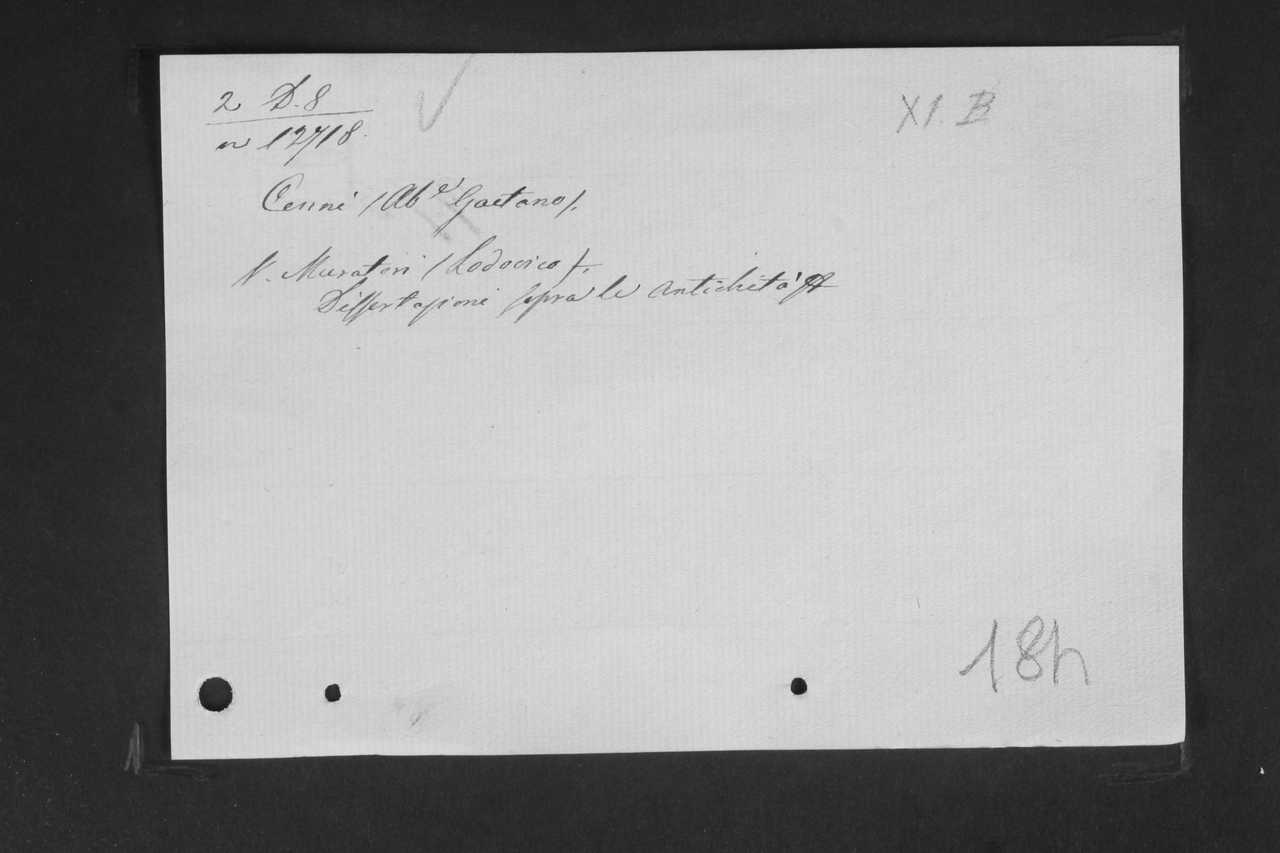 2 D. 8
XI. B
n 12718.
Cenni (Abe Gaetano).
V. Muratori (Lodovico).
Dissertazioni sopra le antichità
18h